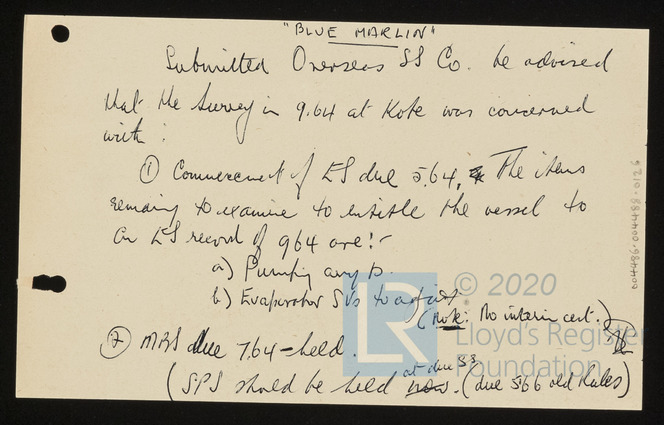 "BLUE MARLIN"
Submitted Overseas SS Co. be advised
that the Survey in 9.64 at Kobe was concerned
with :
① Commencement of ES due 5.64, The items
remaining to examine to entitle the vessel to
an ES record of 9 64 are:-
a) Pumping arrgts.
b) Evaporator SVs to adjust
(Note: No interim cert.)
② MBS due 7.64 - held.
(SPS should be held now at due SS. (due 5 66 old Rules)
004486-004488-0126
© 2020
LR
Lloyd's Register
Foundation